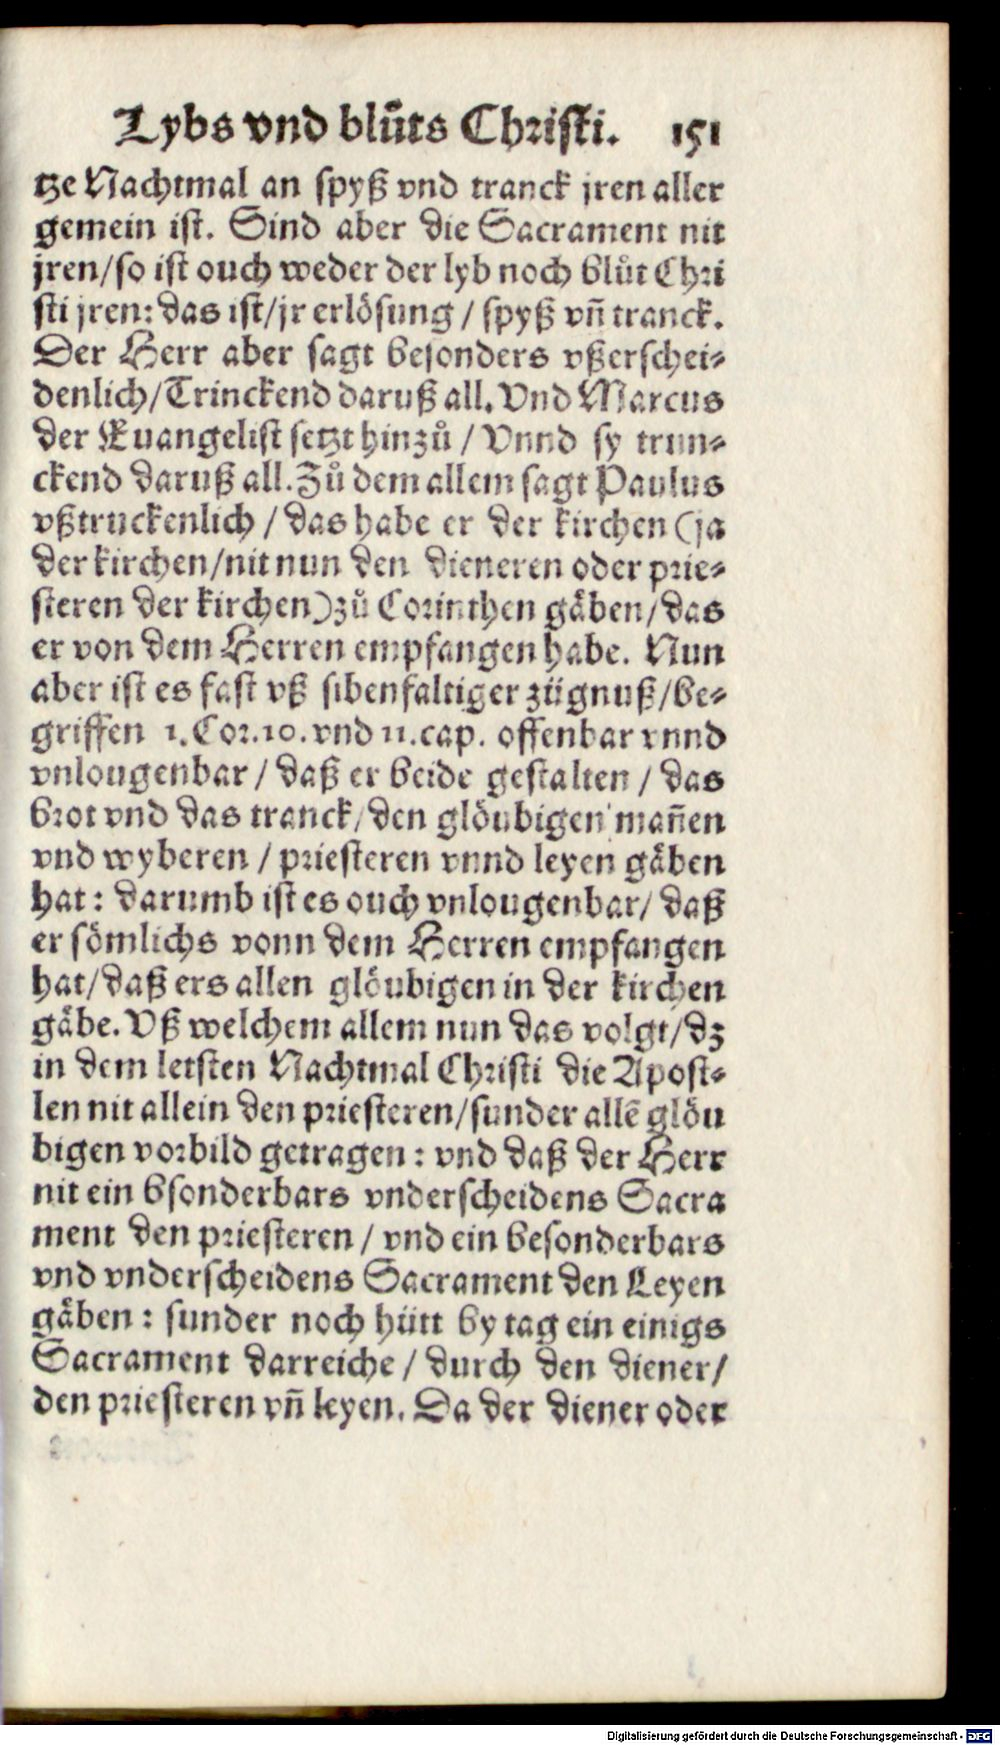 Lybs vnd blůts Christi. 151
tze Nachtmal an spyß vnd tranck jren aller
gemein ist. Sind aber die Sacrament nit
jren/so ist ouch weder der lyb noch blůt Chri
sti jren: das ist/jr erlösung / spyß vñ tranck.
Der Herr aber sagt besonders vßerschei⸗
denlich/Trinckend daruß all. Vnd Marcus
der Euangelist setzt hinzů / Vnnd sy trun⸗
ckend daruß all. Zů dem allem sagt Paulus
vßtruckenlich / das habe er der kirchen (ja
der kirchen/nit nun den dieneren oder prie⸗
steren der kirchen) zů Corinthen gäben/das
er von dem Herren empfangen habe. Nun
aber ist es fast vß sibenfaltiger zügnuß/be⸗
griffen 1. Cor. 10. vnd 11. cap. offenbar vnnd
vnlougenbar / daß er beide gestalten / das
brot vnd das tranck/den glöubigen mañen
vnd wyberen / priesteren vnnd leyen gäben
hat: darumb ist es ouch vnlougenbar/ daß
er sömlichs vonn dem Herren empfangen
hat/daß ers allen glöubigen in der kirchen
gäbe. Vß welchem allem nun das volgt/dz
in dem letsten Nachtmal Christi die Apost⸗
len nit allein den priesteren/sunder allẽ glöu
bigen vorbild getragen: vnd daß der Herr
nit ein bsonderbars vnderscheidens Sacra
ment den priesteren / vnd ein besonderbars
vnd vnderscheidens Sacrament den Leyen
gäben: sunder noch hütt by tag ein einigs
Sacrament darreiche / durch den diener/
den priesteren vñ leyen. Da der diener oder
Digitalisierung gefördert durch die Deutsche Forschungsgemeinschaft - DFG